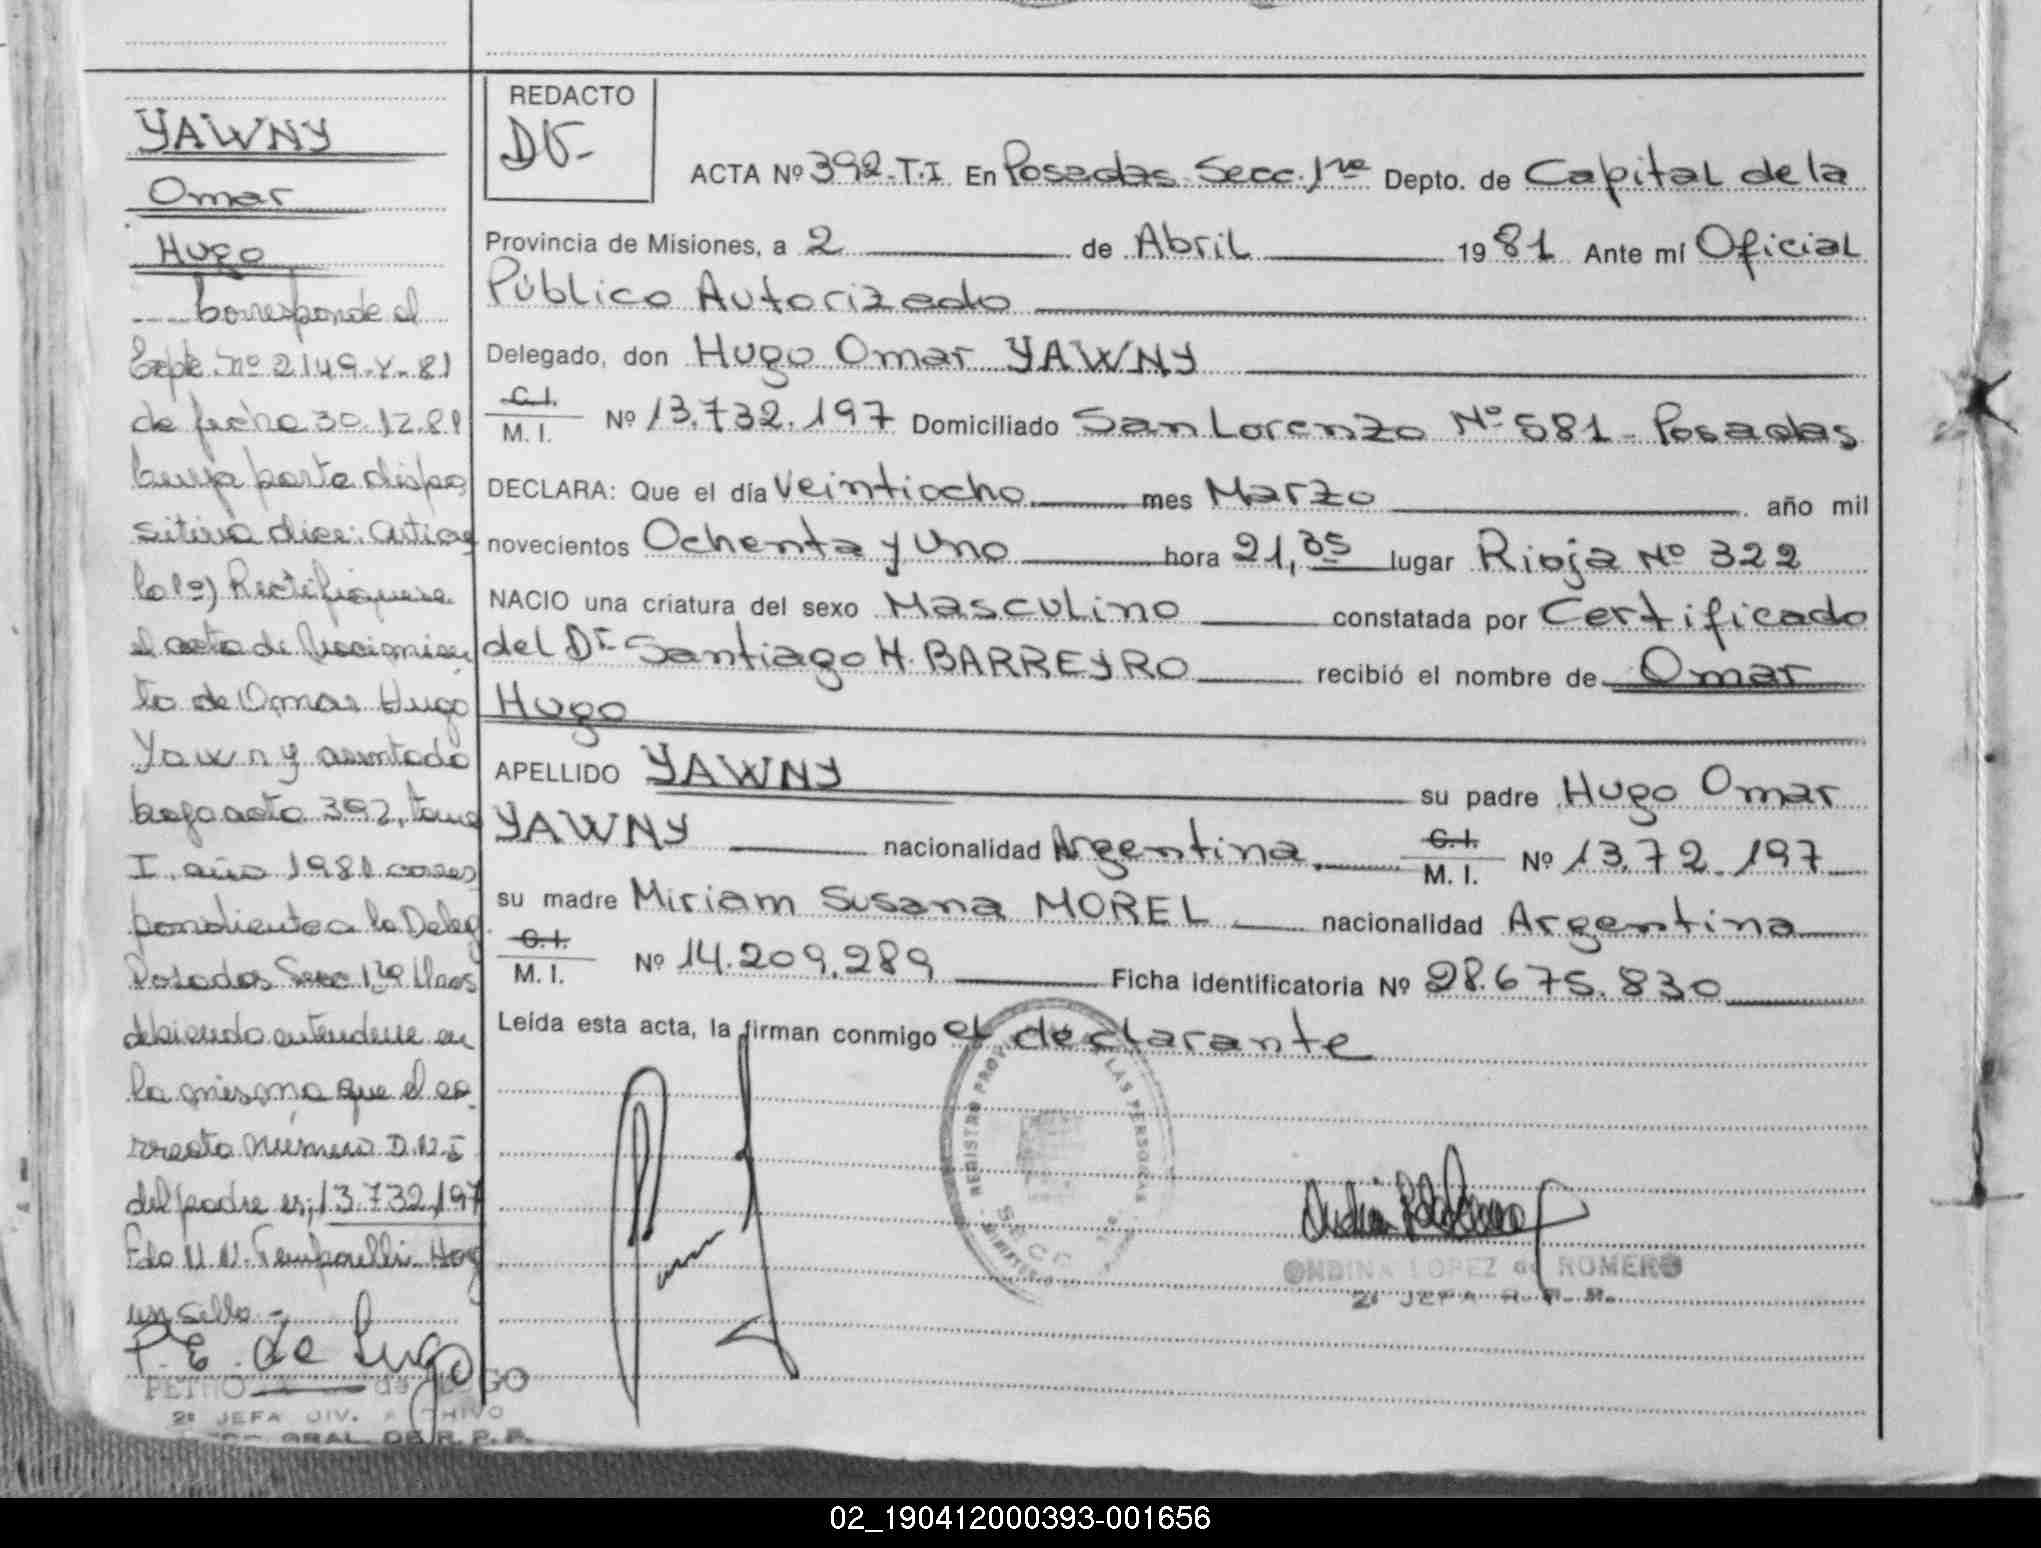 YAWNY
Omar
Hugo
Corresponde el
Expte. Nº 2149-Y-81
de fecha 30.12.81
Cuya parte dispo
sitiva dice: Artícu
lo 1º) Rectifíquese
el acta de Nacimien
to de Omar Hugo
Yawny asentado
bajo acta 392, tomo
I. año 1981 corres
pondiente a la Deleg.
Posadas Secc 1ra
debiendo entenderse en
la misma que el co
rrecto número D.N.I
del padre es; 13.732.197
Fdo N.N. Hay
un sello.-
P. E. de Lugo
de LUGO
2º JEFA DIV. ARCHIVO
GRAL DE R. P. P.
REDACTO
ACTA Nº 392-T.I En Posadas Secc. 1ra Depto. de Capital de la
Provincia de Misiones, a 2 de Abril 1981 Ante mí Oficial
Público Autorizado
Delegado, don Hugo Omar YAWNY
C.I.
M. I. Nº 13.732.197 Domiciliado San Lorenzo Nº 581 - Posadas
DECLARA: Que el día Veintiocho mes Marzo año mil
novecientos Ochenta y Uno hora 21,35 lugar Rioja Nº 322
NACIO una criatura del sexo Masculino constatada por Certificado
del Dr. Santiago H. BARREYRO recibió el nombre de Omar
Hugo
APELLIDO YAWNY su padre Hugo Omar
YAWNY nacionalidad Argentina C.I.
M. I. Nº 13.72.197
su madre Miriam Susana MOREL nacionalidad Argentina
C.I.
M. I. Nº 14.209.289 Ficha identificatoria Nº 28.675.830
Leída esta acta, la firman conmigo el declarante
REGISTRO LAS PERSONAS
SECC
ONDINA LOPEZ de ROMERO
2º JEFA
02_190412000393-001656